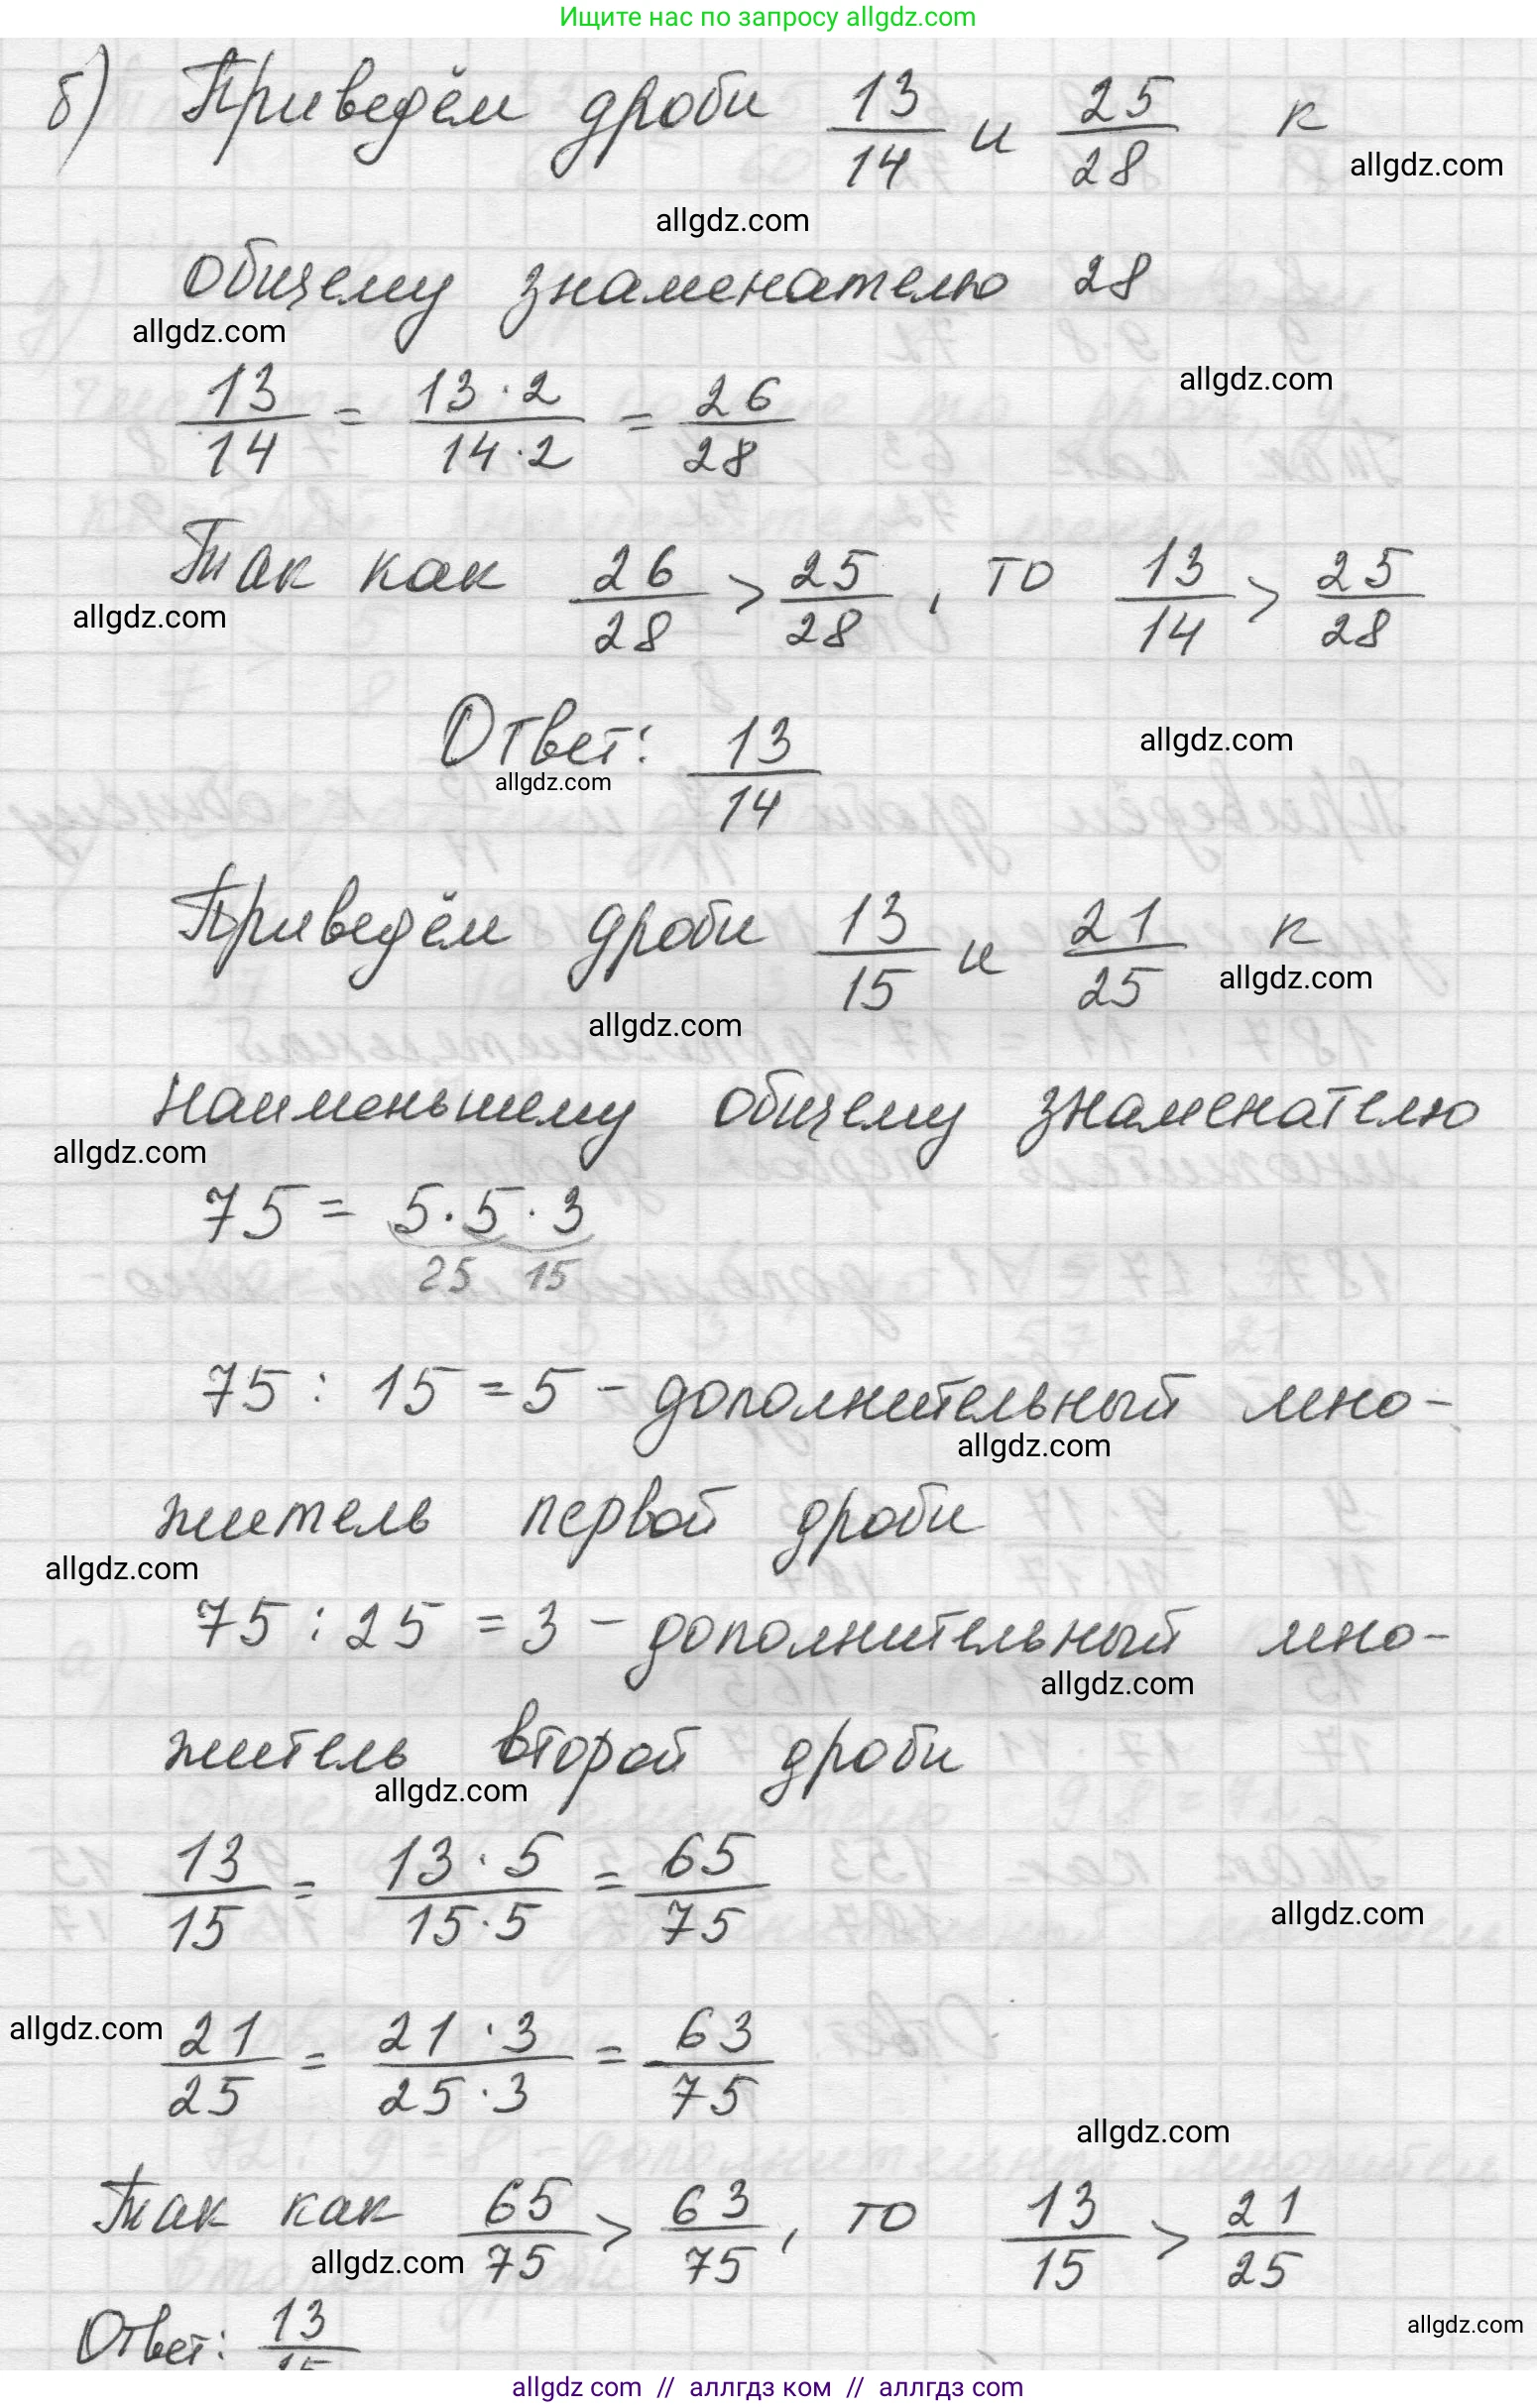 Ищите нас по запросу allgdz.com
б) Приведём дроби 13/14 и 25/28 к
allgdz.com
allgdz.com
общему знаменателю 28
allgdz.com
allgdz.com
13/14 = 13·2/14·2 = 26/28
Так как 26/28 > 25/28, то 13/14 > 25/28
allgdz.com
Ответ: 13/14
allgdz.com
allgdz.com
Приведём дроби 13/15 и 21/25 к
allgdz.com
allgdz.com
наименьшему общему знаменателю
allgdz.com
75 = 5·5·3
25 15
75 : 15 = 5 - дополнительный мно-
allgdz.com
житель первой дроби
allgdz.com
75 : 25 = 3 - дополнительный мно-
allgdz.com
житель второй дроби
allgdz.com
13/15 = 13·5/15·5 = 65/75
allgdz.com
allgdz.com
21/25 = 21·3/25·3 = 63/75
allgdz.com
Так как 65/75 > 63/75, то 13/15 > 21/25
allgdz.com
Ответ: 13/15
allgdz.com
allgdz com // аллгдз ком // аллгдз com